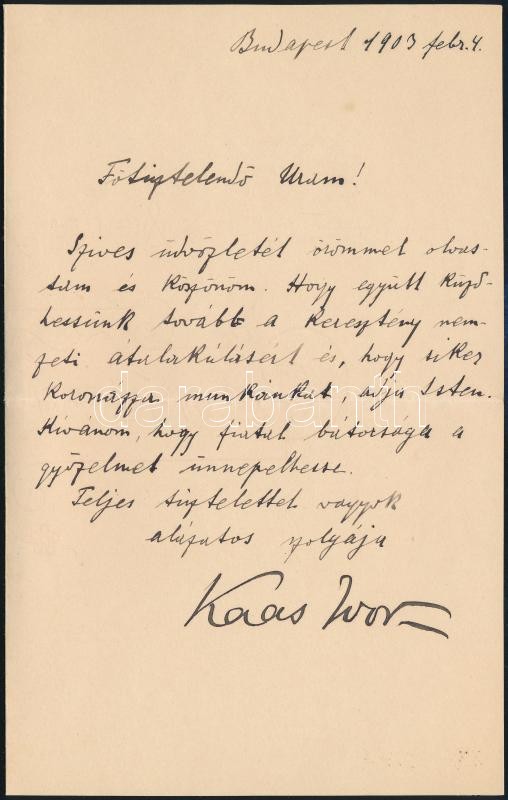 Budapest 1903 febr. 4.
Főtisztelendő Uram!
Szives üdvözletét örömmel olvas-
tam és köszönöm. Hogy együtt küzd-
hessünk tovább a keresztény nem-
zeti átalakulásért és, hogy siker
koronázza munkánkat, adja Isten.
Kivánom, hogy fiatal bátorsága a
győzelmet ünnepelhesse.
Teljes tisztelettel vagyok
alázatos szolgája
Kaas Ivor
darabanth